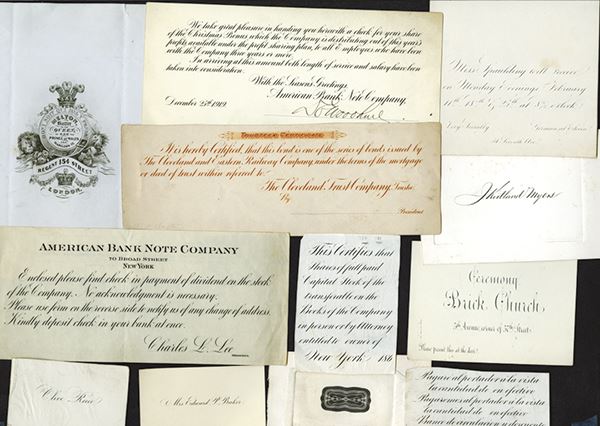 HILTON
QUEEN
PRINCE OF WALES
REGENT 154 STREET
LONDON
We take great pleasure in handing you herewith a check for your share
of the Christmas Bonus which the Company is distributing out of this year's
profits available under the profit sharing plan, to all Employees who have been
with the Company three years or more.
In arriving at this amount both length of service and salary have been
taken into consideration.
With the Season's Greetings,
American Bank Note Company,
December 25th 1919
Trustee's Certificate
It is hereby Certified, that this bond is one of the series of bonds issued by
The Cleveland and Eastern Railway Company under the terms of the mortgage
or deed of trust within referred to.
The Cleveland Trust Company, Trustee
By
President
Spaulding will receive
on Monday Evenings, February
o'clock
Myers
AMERICAN BANK NOTE COMPANY
70 BROAD STREET
NEW YORK
Enclosed please find check in payment of dividend on the stock
of the Company. No acknowledgment is necessary.
Please use form on the reverse side to notify us of any change of address.
Kindly deposit check in your bank at once.
Charles L. Lee
This Certifies that
Shares of full paid
Capital Stock of the
transferable on the
Books of the Company
in person or by Attorney
entitled to owner of
New York 186
Ceremony
Brick Church
5th Avenue, corner of 37th Street
Please present this at the door
Clive Rice
Mrs Edward P. Baker
Pagaré al portador a la vista
la cantidad de en efectivo
Pagaremos al portador a la vista
la cantidad de en efectivo
Banco de circulacion y descuento